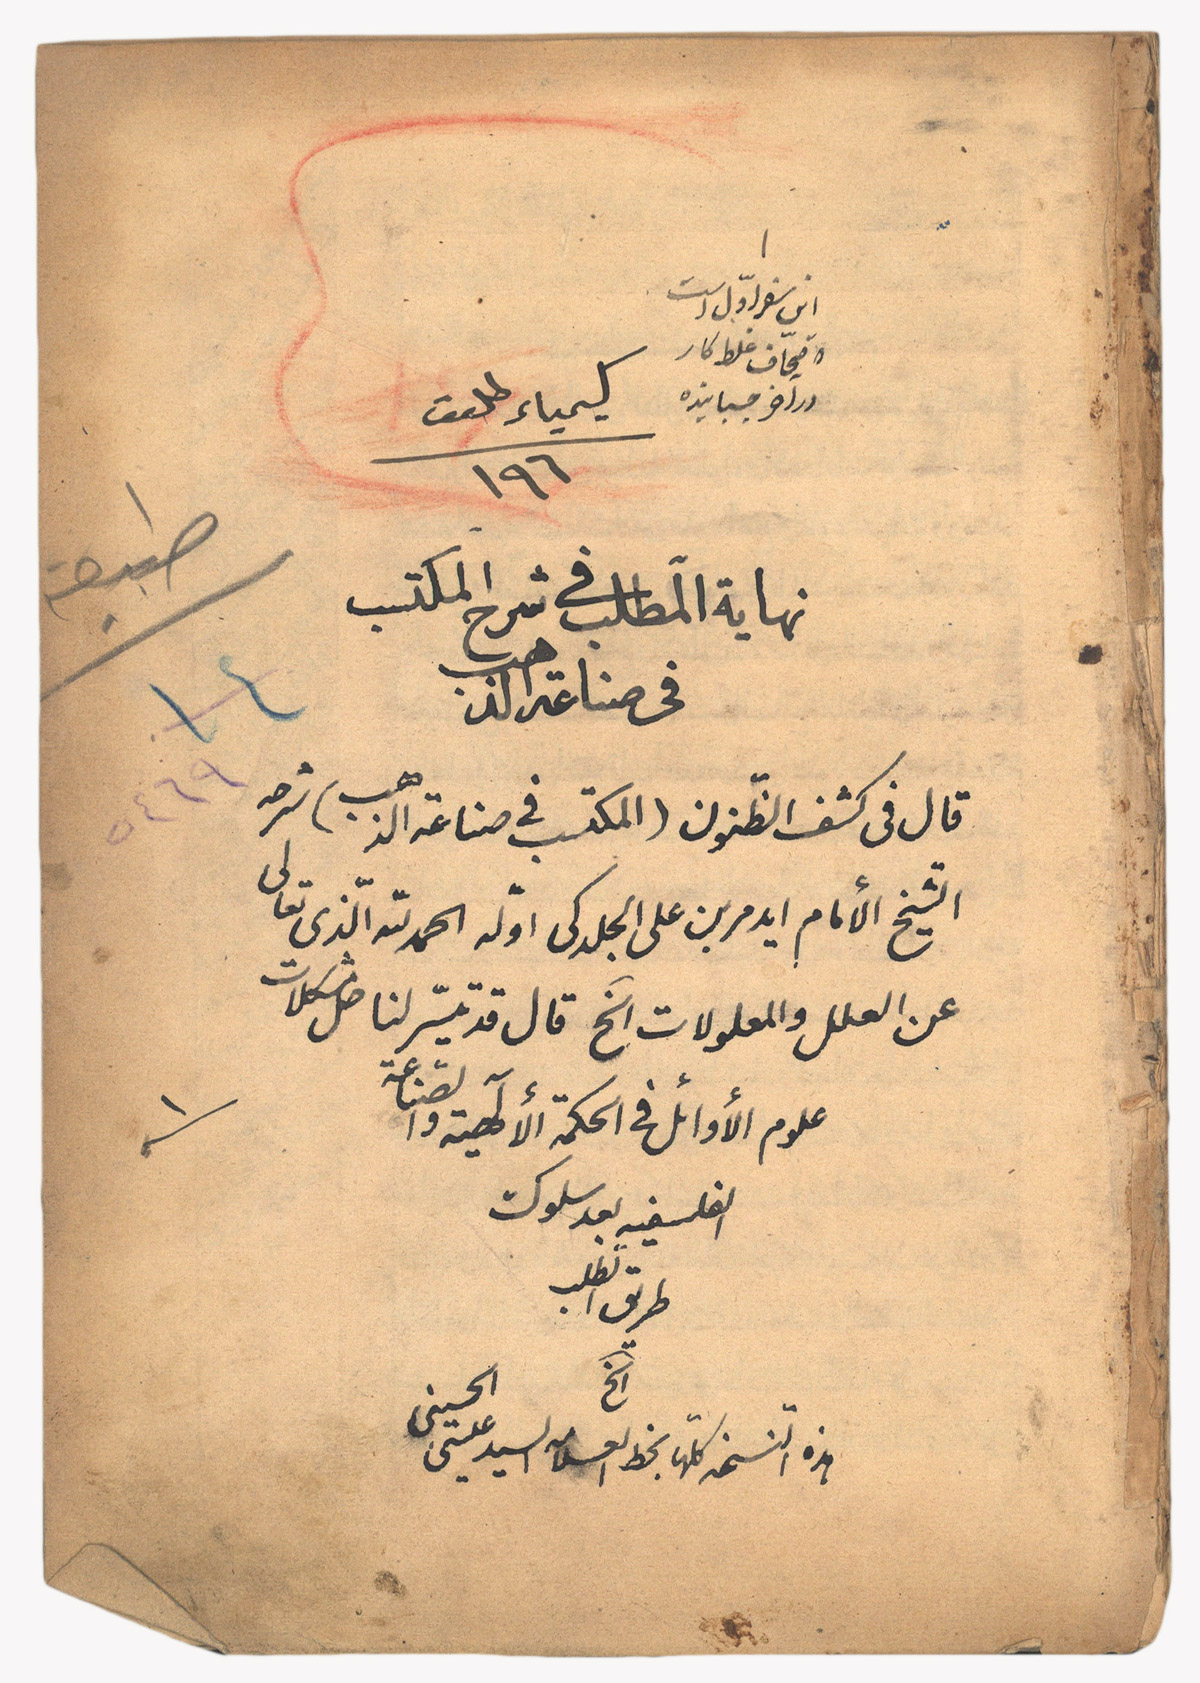 ١
این سفر اوّل است
صحّاف غلط کار
در آخر چسبانیده
كيمياء طلعت
١٩٦
طبيعة
نهاية المطلب في شرح المكتسب
في صناعة الذهب
١٤
٥٤٦٩
قال في كشف الظّنون (المكتسب في صناعة الذهب) شرحه
الشّيخ الأمام ايدمر بن على الجلدكى اوّله الحمد لله الّذى تعالى
عن العلل والمعلولات الخ قال قد تيسّر لنا حلّ مشكلات
علوم الأوائل في الحكمة الألهية والصّناعة
١
الفلسفيه بعد سلوك
طريق الطّلب
الخ
هذه النّسخه كلّها بخط العلامه السيد عيسى الحسينى